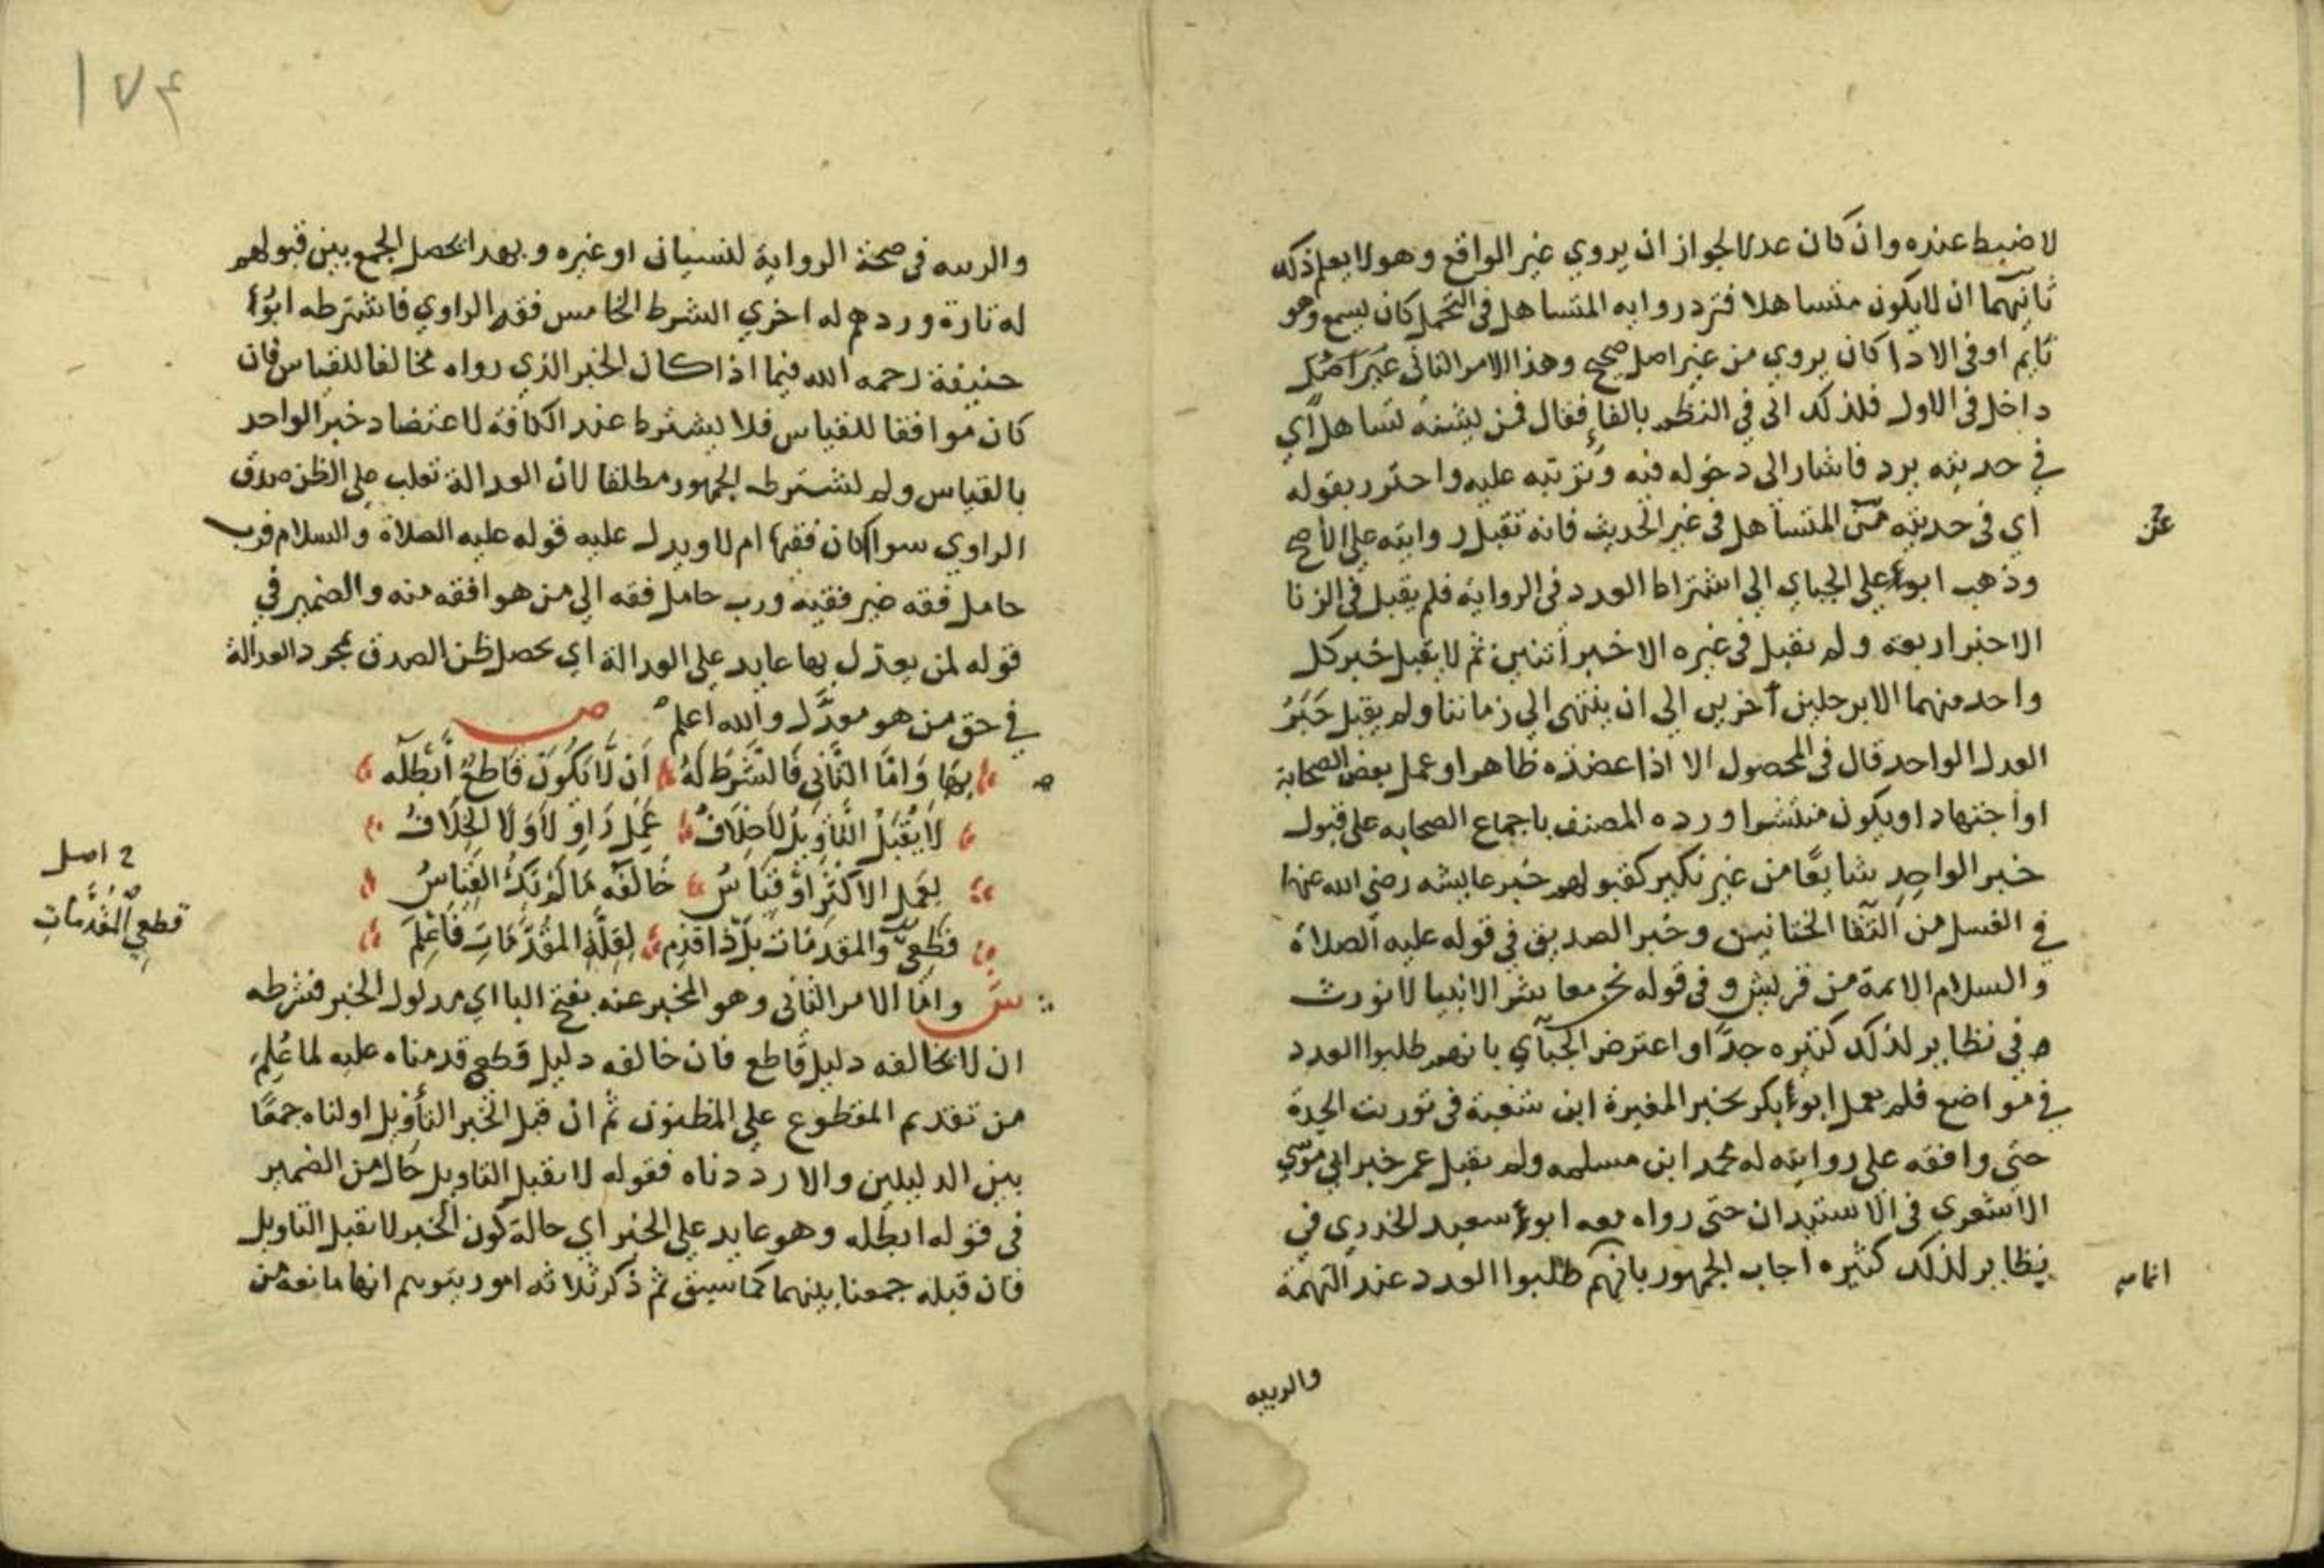 لا ضبط عنده وان كان عدلا لجواز ان يروي غير الواقع وهو لا يعلم ذلك
ثانيهما ان لا يكون متساهلا فترد روايه المتساهل في التحمل كان يسمع وهو
نايم او في الادا كان يروي من غير اصل صحيح وهذا الامر الثاني
داخل في الاول فلذلك اتى في النظم بالفاء فقال فمن تساهل اي
في حديثه يرد فاشار الى دخوله فيه وترتبه عليه واحترز بقوله
اي في حديثه المتساهل في غير الحديث فانه تقبل روايته علي الاصح
عن
وذهب ابو علي الجباي الي اشتراط العدد في الرواية فلم يقبل في الزنا
الا خبر اربعة ولم يقبل في غيره الا خبر اثنين ثم لا يقبل خبر كل
واحد منهما الا برجلين آخرين الي ان ينتهي الي زماننا ولم يقبل خبر
العدل الواحد قال في المحصول الا اذا عضده ظاهر او عمل بعض الصحابة
او اجتهاد او يكون منتشرا ورده المصنف باجماع الصحابه على قبول
خبر الواحد شايعا من غير نكير كقبولهم خبر عايشه رضي الله عنها
في الغسل من التقا الختانين وخبر الصديق في قوله عليه الصلاة
والسلام الايمة من قريش وفي قوله نحن معاشر الانبيا لا نورث
في نظاير لذلك كثيره جدا واعترض الجبآي بانهم طلبوا العدد
في مواضع فلم يعمل ابو بكر بخبر المغيرة ابن شعبة في توريث الجدة
حتى وافقه على روايته له محمد ابن مسلمه ولم يقبل عمر خبر ابي موسي
الاشعري في الاستيذان حتى رواه معه ابو سعيد الخدري في
نظاير لذلك كثيره اجاب الجمهور بانهم طلبوا العدد عند التهمة
انما
والريبه
١٧٤
والريبه في صحة الرواية لنسيان او غيره وبهذا يحصل الجمع بين قبولهم
له تارة وردهم له اخري الشرط الخامس فقه الراوي فاشترطه ابو
حنيفة رحمه الله فيما اذا كان الخبر الذي رواه مخالفا للقياس فان
كان موافقا للقياس فلا يشترط عند الكافة لاعتضاد خبر الواحد
بالقياس ولم يشترطه الجمهور مطلقا لان العدالة تغلب علي الظن صدق
الراوي سوا كان فقيها ام لا ويدل عليه قوله عليه الصلاة والسلام فرب
حامل فقه غير فقيه ورب حامل فقه الي من هو افقه منه والضمير في
قوله لمن يعدل بها عايد علي العدالة اي يحصل ظن الصدق بمجرد العدالة
في حق من هو معدل والله اعلم ص
بها وَامَّا الثَّانِي فَالشَّرْطُ لَهُ اَن لَّا يَكُونَ قَاطِعٌ أَبْطَلَه
لَا يُقْبَلُ التَّأوِيلُ لَا خِلَافُ عَمَلِ رَاوٍ لَا وَلَا الخِلَافُ
لِعَمَلِ الاكْثَرِ اَوْ قِيَاسُ خَالَفَه مَا لَمْ يَكُ القِيَاسُ
قَطْعِيَّ والمقدمات بَلْ ذَا قَدِّمِ لِقِلَّةِ المُقَدِّمَاتِ فَاعْلَمِ
ح اصل
قطعِيَّ الْمُقَدَّمَاتِ
ش وامَّا الامر الثاني وهو المخبر عنه بفتح البا اي مدلول الخبر فشرطه
ان لا يخالفه دليل قاطع فان خالفه دليل قطع قدمناه عليه لما عُلِمَ
من تقديم المقطوع علي المظنون ثم ان قبل الخبر التأويل اولناه جمعًا
بين الدليلين والا رددناه فقوله لا يقبل التاويل حال من الضمير
في قوله ابطله وهو عايد علي الخبر اي حالة كون الخبر لا يقبل التاويل
فان قبله جمعنا بينهما كما سبق ثم ذكر ثلاثه امور يتوهم انها مانعة من